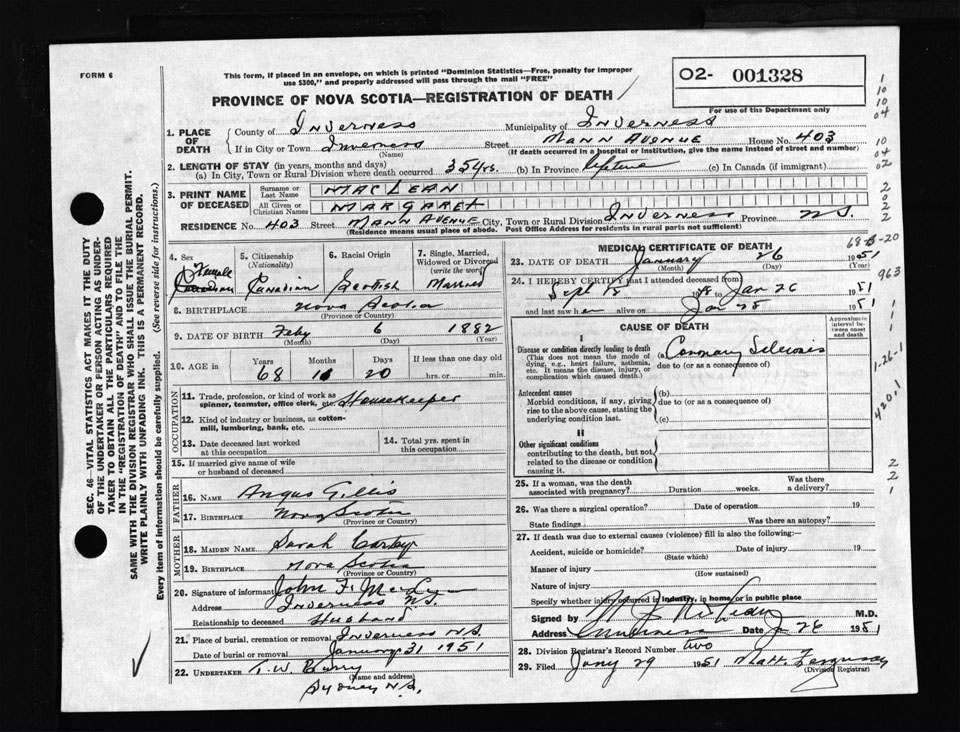 FORM 6
This form, if placed in an envelope, on which is printed "Dominion Statistics—Free, penalty for improper
use $300," and properly addressed will pass through the mail "FREE"
O2- 001328
For use of the Department only
PROVINCE OF NOVA SCOTIA—REGISTRATION OF DEATH
1. PLACE OF DEATH
County of Inverness Municipality of Inverness
If in City or Town Inverness Street Mann Avenue House No. 403
(Name) (If death occurred in a hospital or institution, give the name instead of street and number)
2. LENGTH OF STAY (in years, months and days)
(a) In City, Town or Rural Division where death occurred 35 yrs. (b) In Province lifetime (c) In Canada (if immigrant)
3. PRINT NAME OF DECEASED
Surname or Last Name MACLEAN
All Given or Christian Names MARGARET
RESIDENCE No. 403 Street Mann Avenue City, Town or Rural Division Inverness Province N.S.
(Residence means usual place of abode. Post Office Address for residents in rural parts not sufficient)
4. Sex Female
5. Citizenship (Nationality) Canadian
6. Racial Origin Scottish
7. Single, Married, Widowed or Divorced (write the word) Married
8. BIRTHPLACE Nova Scotia
(Province or Country)
9. DATE OF BIRTH Feby 6 1882
(Month) (Day) (Year)
10. AGE in Years Months Days If less than one day old
68 20 hrs. or min.
OCCUPATION
11. Trade, profession, or kind of work as spinner, teamster, office clerk, etc. Housekeeper
12. Kind of industry or business, as cotton-mill, lumbering, bank, etc.
13. Date deceased last worked at this occupation
14. Total yrs. spent in this occupation
15. If married give name of wife or husband of deceased
FATHER
16. NAME Angus Gillis
17. BIRTHPLACE Nova Scotia
(Province or Country)
MOTHER
18. MAIDEN NAME Sarah
19. BIRTHPLACE Nova Scotia
(Province or Country)
20. Signature of informant John F.
Address Inverness N.S.
Relationship to deceased Husband
21. Place of burial, cremation or removal Inverness N.S.
Date of burial or removal January 31 1951
22. UNDERTAKER T.W.
(Name and address)
Sydney N.S.
MEDICAL CERTIFICATE OF DEATH
23. DATE OF DEATH January 26 1951
(Month) (Day) (Year)
24. I HEREBY CERTIFY that I attended deceased from
Sept 18 Jan 26 1951
and last saw her alive on Jan 25 1951
CAUSE OF DEATH
Approximate interval between onset and death
I
Disease or condition directly leading to death
(This does not mean the mode of dying, e.g., heart failure, asthenia, etc. It means the disease, injury, or complication which caused death.)
(a) Coronary Sclerosis
due to (or as a consequence of)
Antecedent causes
Morbid conditions, if any, giving rise to the above cause, stating the underlying condition last.
(b)
due to (or as a consequence of)
(c)
II
Other significant conditions
contributing to the death, but not related to the disease or condition causing it.
25. If a woman, was the death associated with pregnancy? Duration weeks. Was there a delivery?
26. Was there a surgical operation? Date of operation 19
State findings Was there an autopsy?
27. If death was due to external causes (violence) fill in also the following:—
Accident, suicide or homicide? Date of injury 19
(State which)
Manner of injury
(How sustained)
Nature of injury
Specify whether injury occurred in industry, in home or in public place
Signed by M.D.
Address Inverness Date Jan 26 1951
28. Division Registrar's Record Number two
29. Filed Jany 29 1951 Matt. Ferguson
(Division Registrar)
SEC. 46—VITAL STATISTICS ACT MAKES IT THE DUTY
OF THE UNDERTAKER OR PERSON ACTING AS UNDER-
TAKER TO OBTAIN ALL THE PARTICULARS REQUIRED
IN THE "REGISTRATION OF DEATH" AND TO FILE THE
SAME WITH THE DIVISION REGISTRAR WHO SHALL ISSUE THE BURIAL PERMIT.
WRITE PLAINLY WITH UNFADING INK. THIS IS A PERMANENT RECORD.
Every item of information should be carefully supplied. (See reverse side for instructions.)
1
10
10
04
10
04
02
2
0
2
2
963
1-26-1
420.1
2
2
1